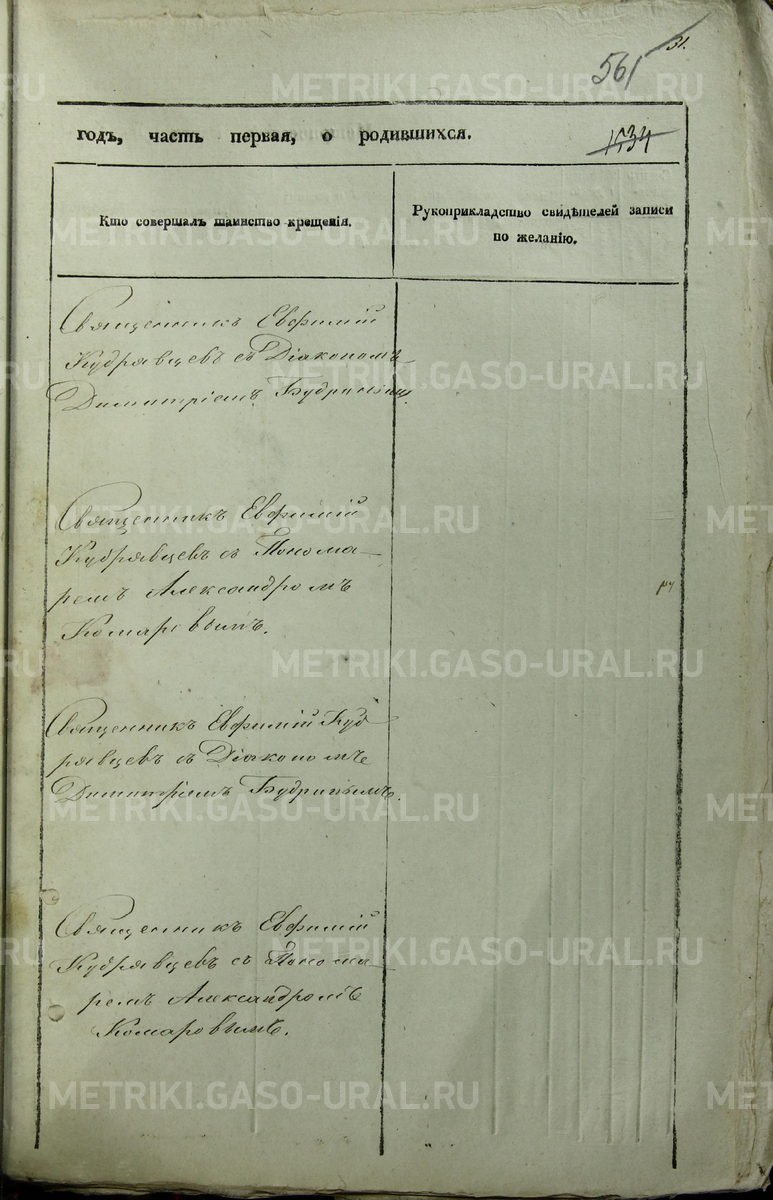 31.
561
годъ, часть первая, о родившихся.
1534
Кто совершалъ таинство крещенія.
Рукоприкладство свидѣтелей записи
по желанію.
Священникъ Евфимій
Кудрявцевъ съ Діакономъ
Димитріемъ Будринымъ.
Священникъ Евфимій
Кудрявцевъ съ Понома-
ремъ Александромъ
Комаровымъ.
Священникъ Евфимій Куд
рявцевъ съ Діакономъ
Димитріемъ Будринымъ.
Священникъ Евфимій
Кудрявцевъ съ Понома-
ремъ Александромъ
Комаровымъ.
METRIKI.GASO-URAL.RU